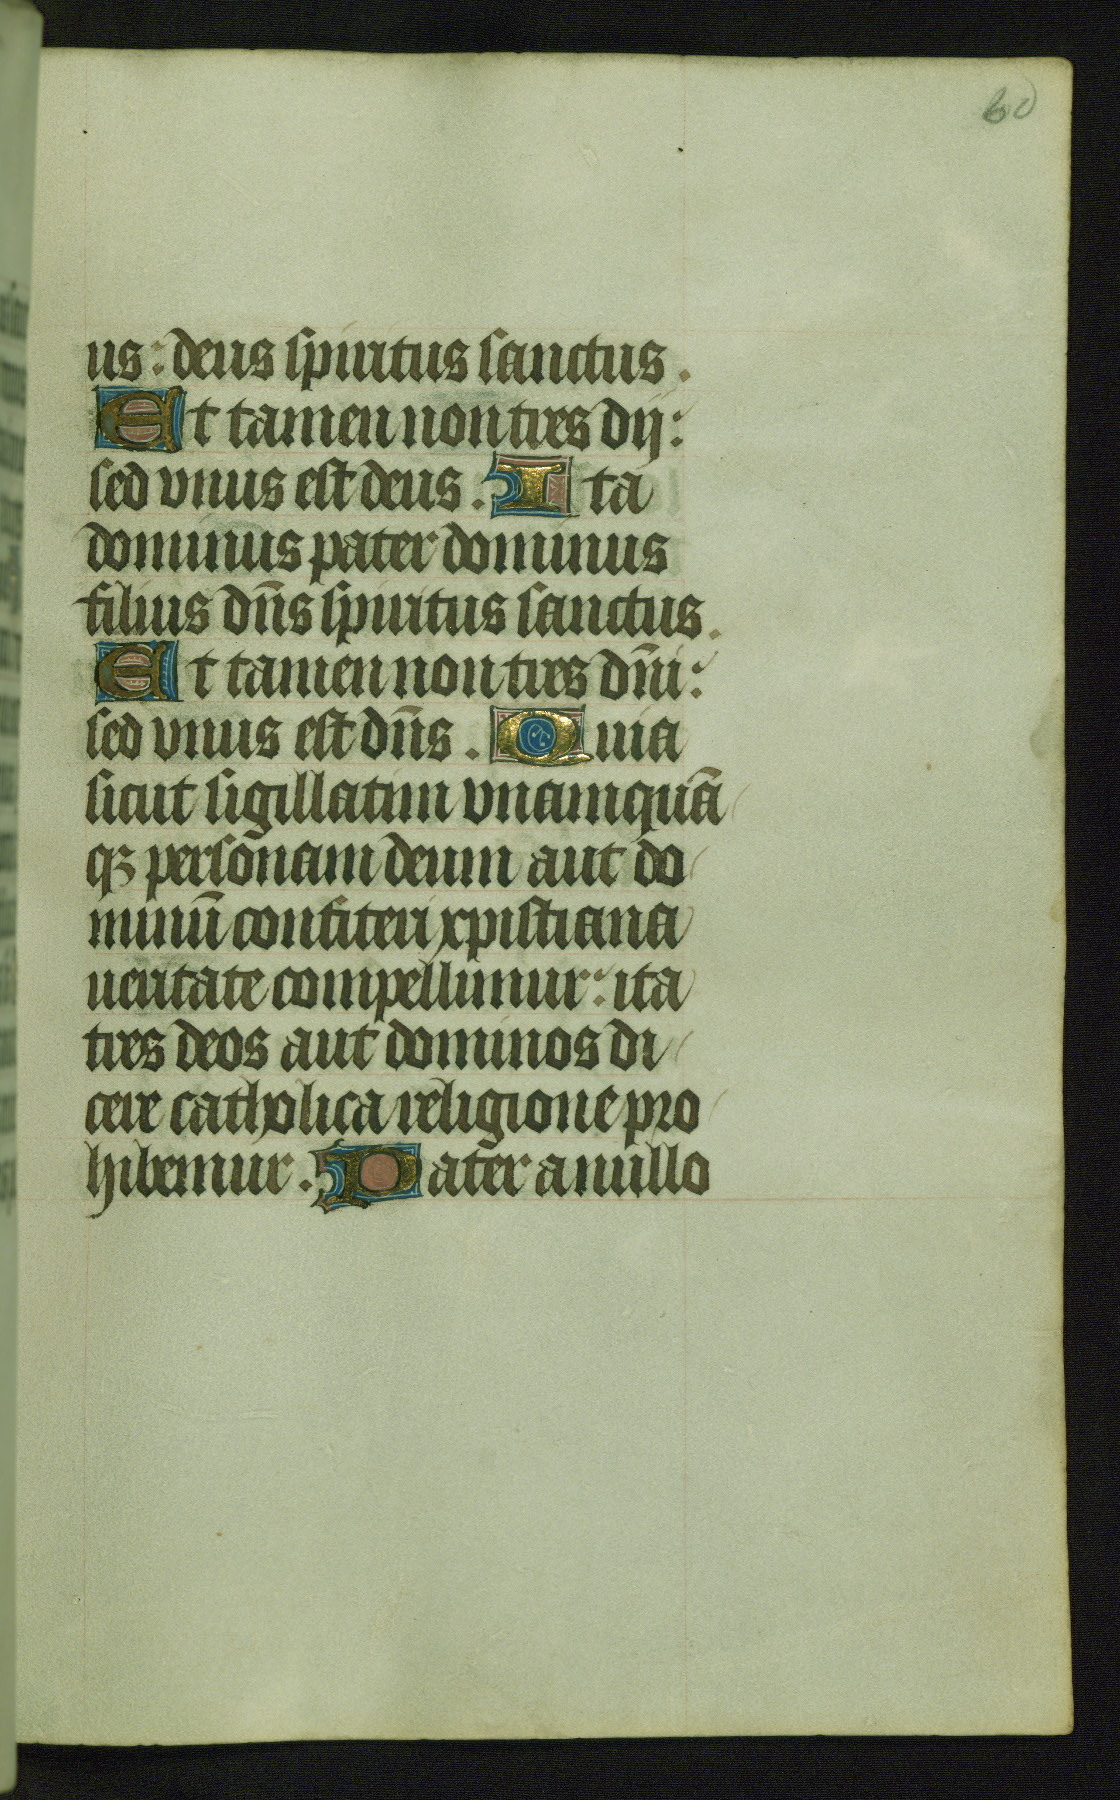 60
us: deus spiritus sanctus.
Et tamen non tres dij:
sed vnus est deus. Ita
dominus pater dominus
filius dñs spiritus sanctus.
Et tamen non tres dñi:
sed vnus est dñs. Quia
sicut sigillatim vnamquā
qꝫ personam deum aut do
minū confiteri xpistiana
ueritate compellimur: ita
tres deos aut dominos di
cere catholica religione pro
hibemur. Pater a nullo